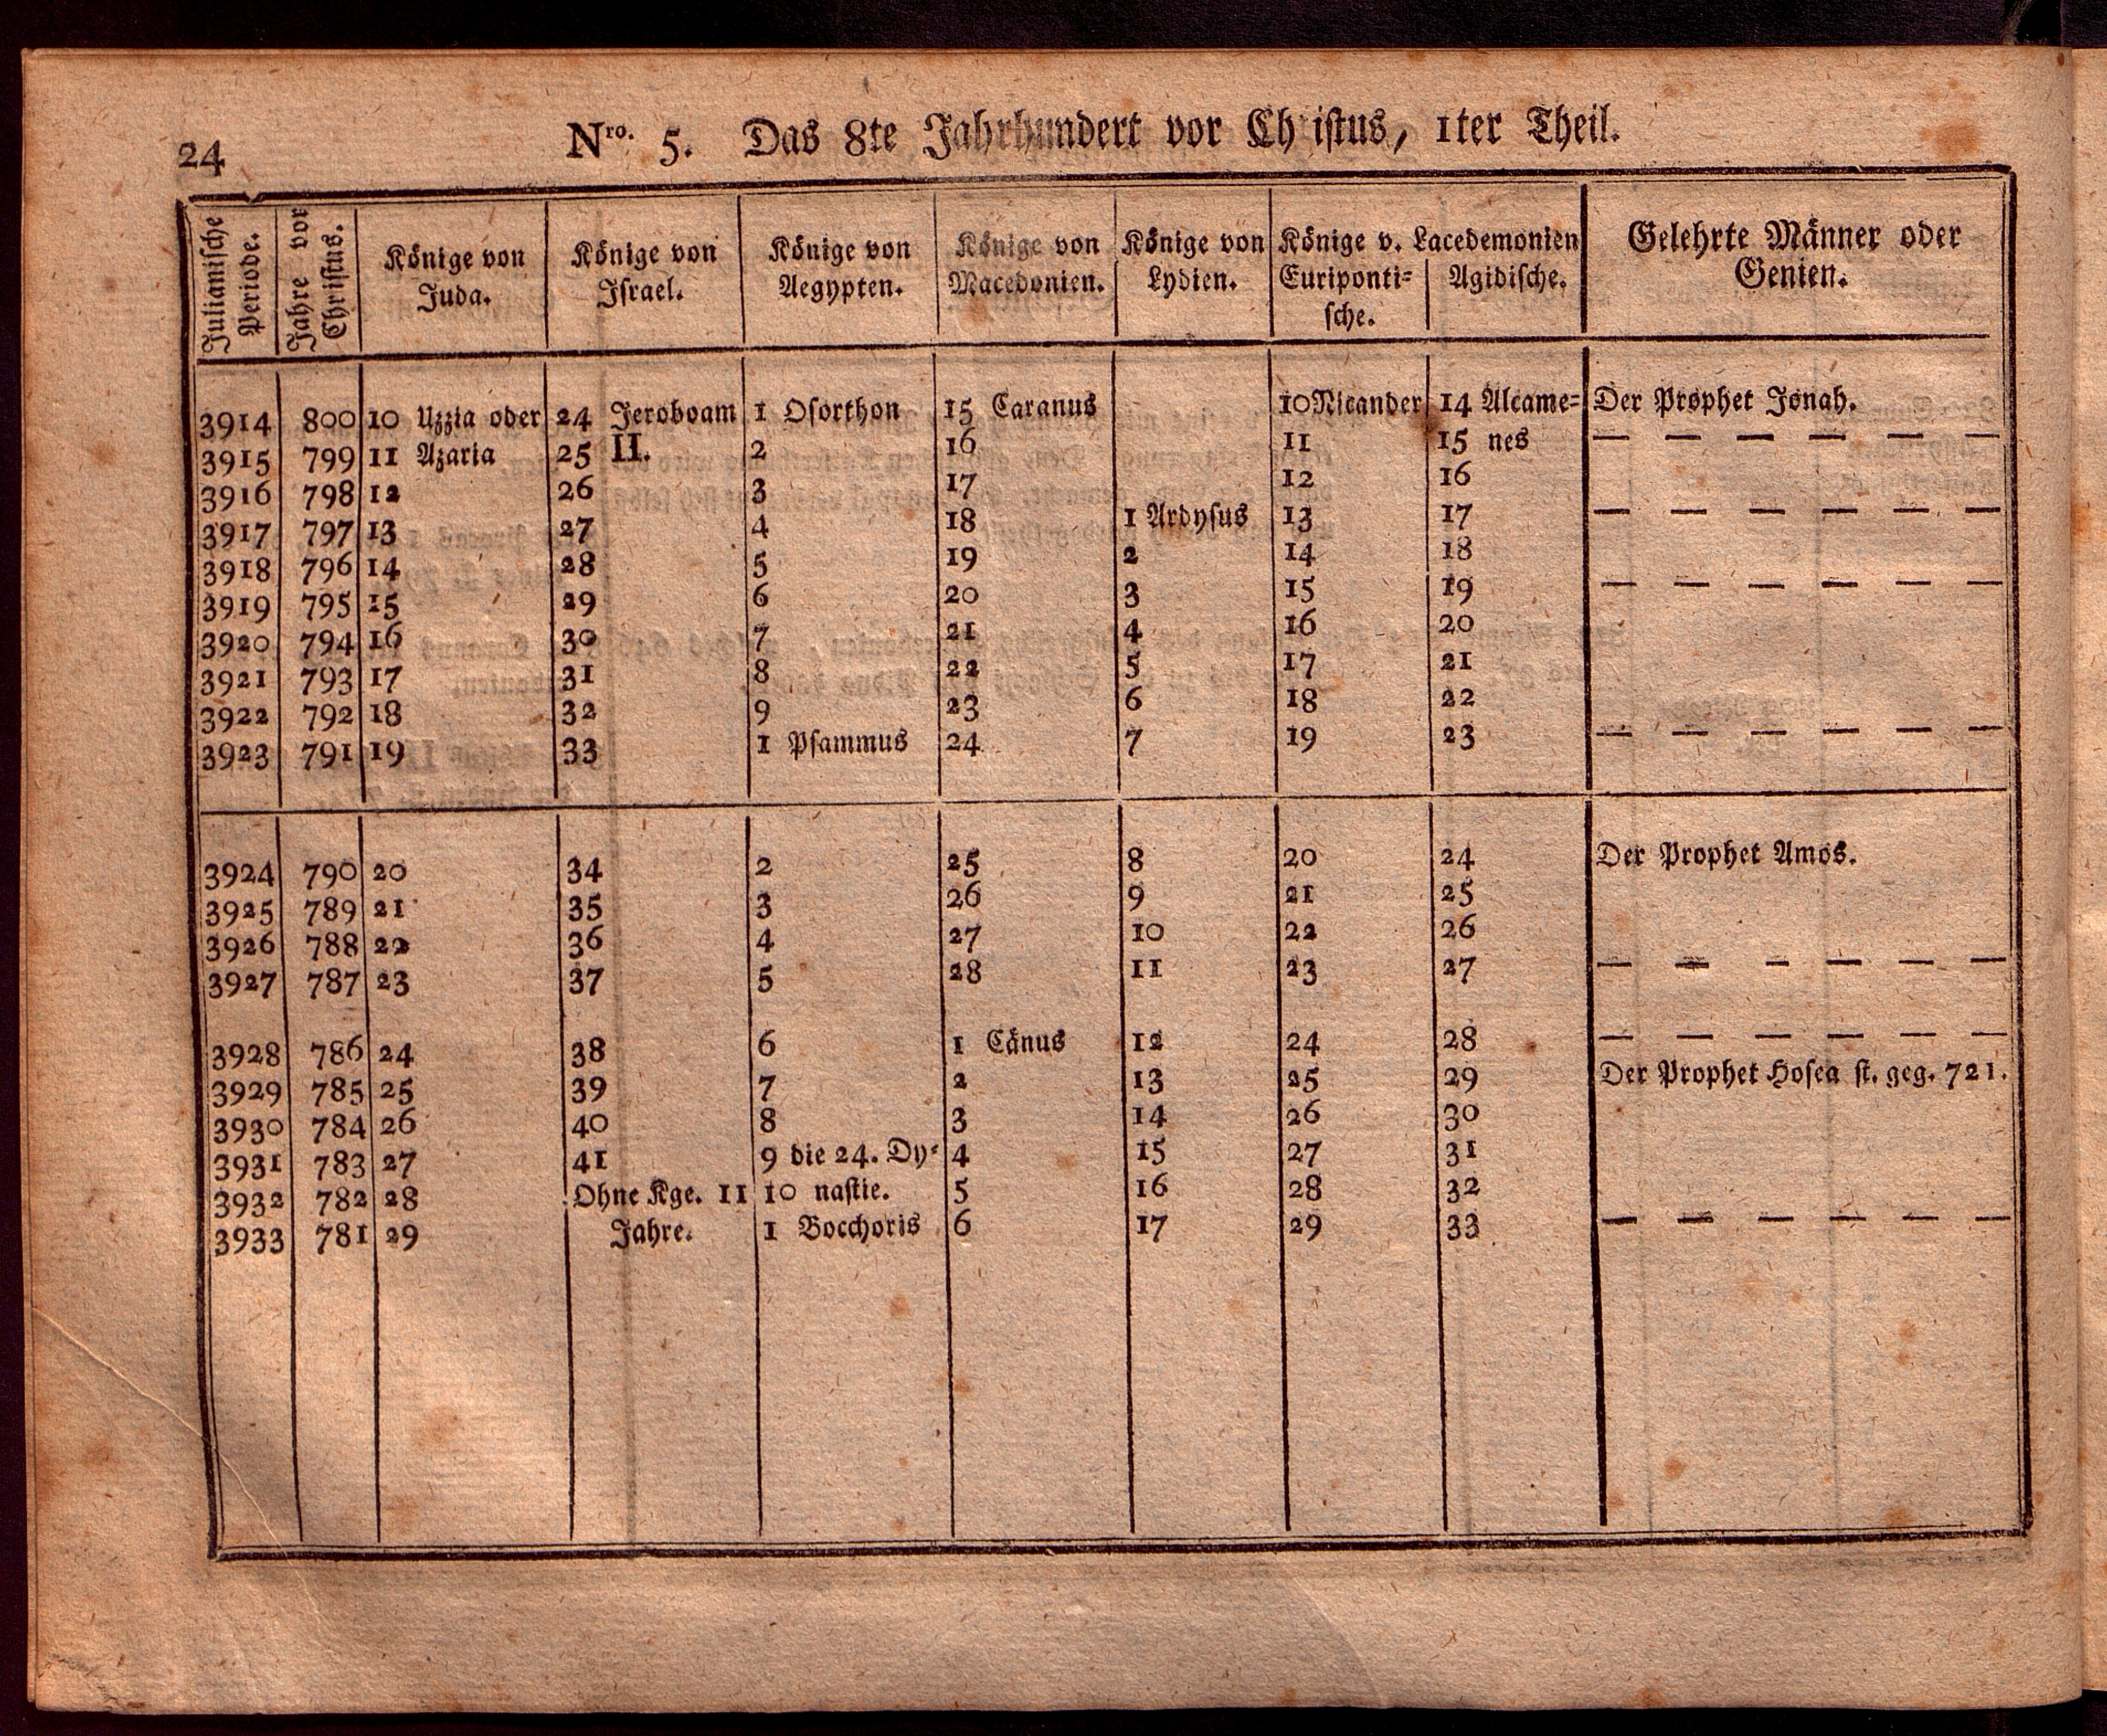 24
Nro. 5. Das 8te Jahrhundert vor Christus, 1ter Theil.
Julianische Periode. | Jahre vor Christus. | Könige von Juda. | Könige von Israel. | Könige von Aegypten. | Könige von Macedonien. | Könige von Lydien. | Könige v. Lacedemonien Euriponti= sche. | Agidische. | Gelehrte Männer oder Genien.
3914 800 10 Uzzia oder 24 Jeroboam 1 Osorthon 15 Caranus 10 Nicander 14 Alcame= Der Prophet Jonah.
3915 799 11 Azaria 25 II. 2 16 11 15 nes — — — — — —
3916 798 12 26 3 17 12 16
3917 797 13 27 4 18 1 Ardysus 13 17 — — — — — —
3918 796 14 28 5 19 2 14 18
3919 795 15 29 6 20 3 15 19 — — — — — —
3920 794 16 30 7 21 4 16 20
3921 793 17 31 8 22 5 17 21
3922 792 18 32 9 23 6 18 22
3923 791 19 33 1 Psammus 24 7 19 23 — — — — — —
3924 790 20 34 2 25 8 20 24 Der Prophet Amos.
3925 789 21 35 3 26 9 21 25
3926 788 22 36 4 27 10 22 26
3927 787 23 37 5 28 11 23 27 — — — — — —
3928 786 24 38 6 1 Cänus 12 24 28 — — — — — —
3929 785 25 39 7 2 13 25 29 Der Prophet Hosea st. geg. 721.
3930 784 26 40 8 3 14 26 30
3931 783 27 41 9 die 24. Dy= 4 15 27 31
3932 782 28 Ohne Kge. 11 10 nastie. 5 16 28 32
3933 781 29 Jahre. 1 Bocchoris 6 17 29 33 — — — — — —